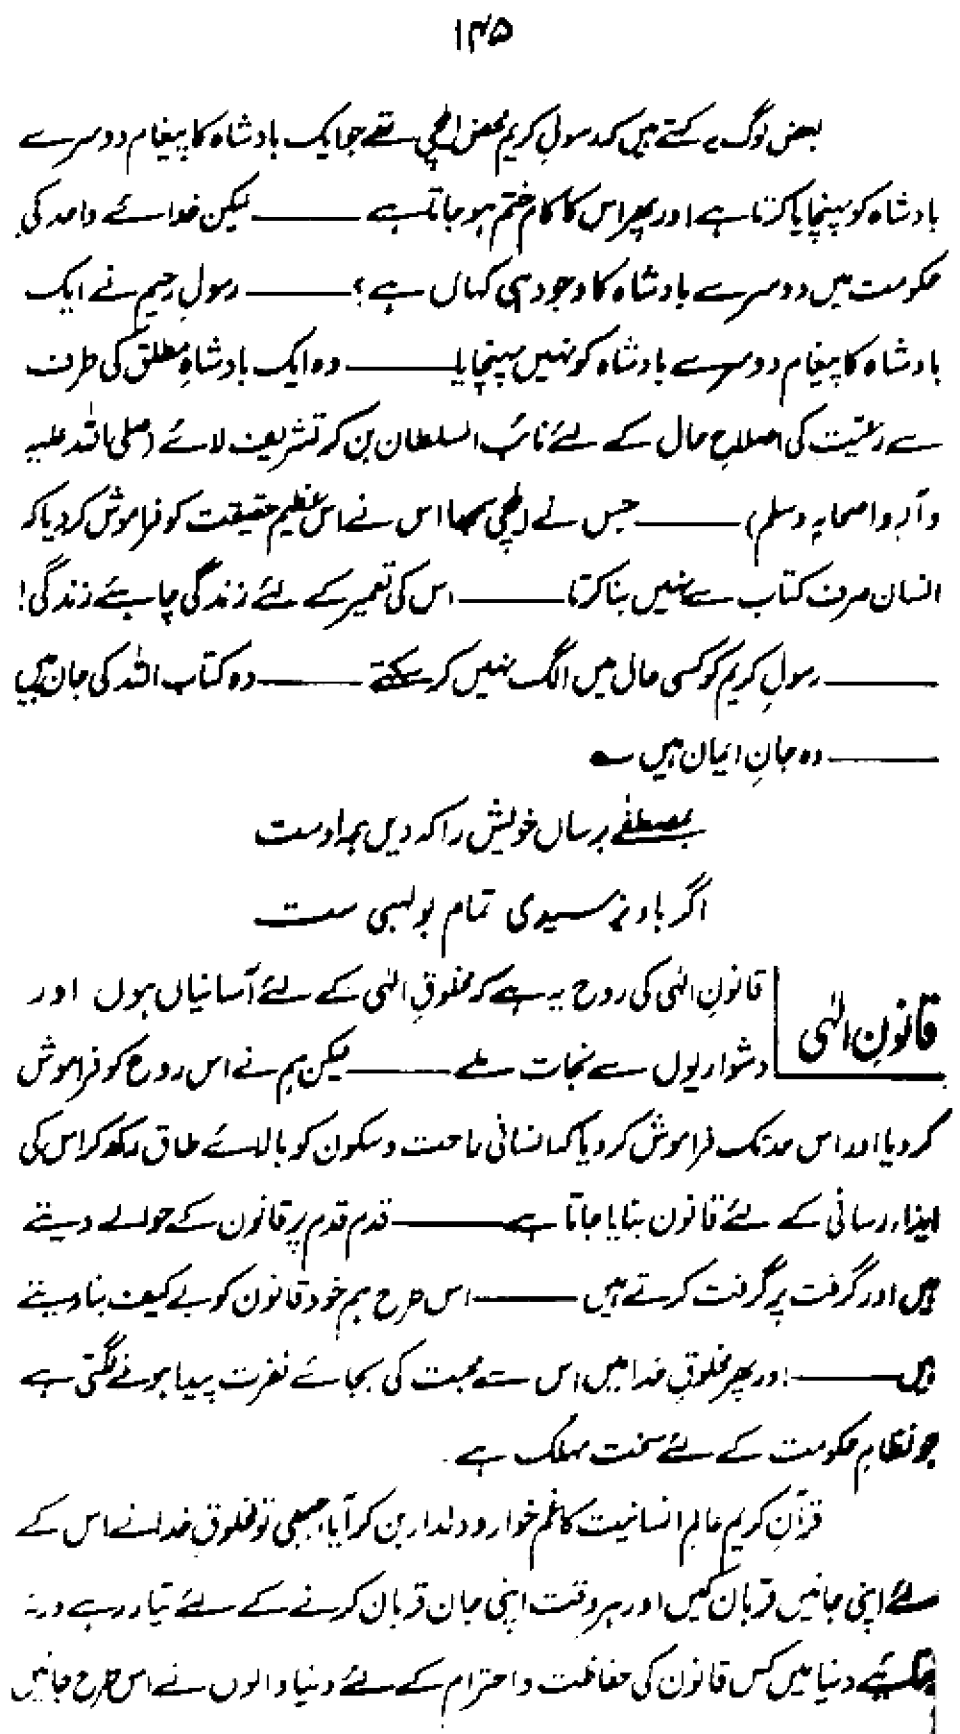 ۱۴۵
بعض لوگ یہ کہتے ہیں کہ رسولِ کریم محض ایلچی تھے جو ایک بادشاہ کا پیغام دوسرے
بادشاہ کو پہنچایا کرتا ہے اور پھر اس کا کام ختم ہو جاتا ہے ——— لیکن خدائے واحد کی
حکومت میں دوسرے بادشاہ کا وجود ہی کہاں ہے؟ ——— رسولِ رحیم نے ایک
بادشاہ کا پیغام دوسرے بادشاہ کو نہیں پہنچایا ——— وہ ایک بادشاہِ مطلق کی طرف
سے رعیّت کی اصلاحِ حال کے لئے نائب السلطان بن کر تشریف لائے (صلی اللہ علیہ
وآلہ واصحابہ وسلم) ——— جس نے ایلچی سمجھا اس نے اس عظیم حقیقت کو فراموش کر دیا کہ
انسان صرف کتاب سے نہیں بنا کرتا ——— اس کی تعمیر کے لئے زندگی چاہیئے زندگی!
——— رسولِ کریم کو کسی حال میں الگ نہیں کر سکتے ——— وہ کتاب اللہ کی جان ہیں
——— وہ جانِ ایمان ہیں ؎
بمصطفےٰ برساں خویش را کہ دیں ہمہ اوست
اگر باو نہ رسیدی تمام بولہبی ست
قانونِ الٰہی
قانونِ الٰہی کی روح یہ ہے کہ مخلوقِ الٰہی کے لئے آسانیاں ہوں اور
دشواریوں سے نجات ملے ——— لیکن ہم نے اس روح کو فراموش
کر دیا اور اس حد تک فراموش کر دیا کہ انسانی راحت و سکون کو بالائے طاق رکھ کر اس کی
ایذاء رسانی کے لئے قانون بنایا جاتا ہے ——— قدم قدم پر قانون کے حوالے دیتے
ہیں اور گرفت پر گرفت کرتے ہیں ——— اس طرح ہم خود قانون کو بے کیف بنا دیتے
ہیں ——— اور پھر مخلوقِ خدا میں اس سے محبت کی بجائے نفرت پیدا ہونے لگتی ہے
جو نظامِ حکومت کے لئے سخت مہلک ہے۔
قرآنِ کریم عالمِ انسانیت کا غم خوار و دلدار بن کر آیا، جبھی تو مخلوقِ خدا نے اس کے
لئے اپنی جانیں قربان کیں اور ہر وقت اپنی جان قربان کرنے کے لئے تیار رہے ورنہ
دنیا میں کس قانون کی حفاظت و احترام کے لئے دنیا والوں نے اس طرح جانیں